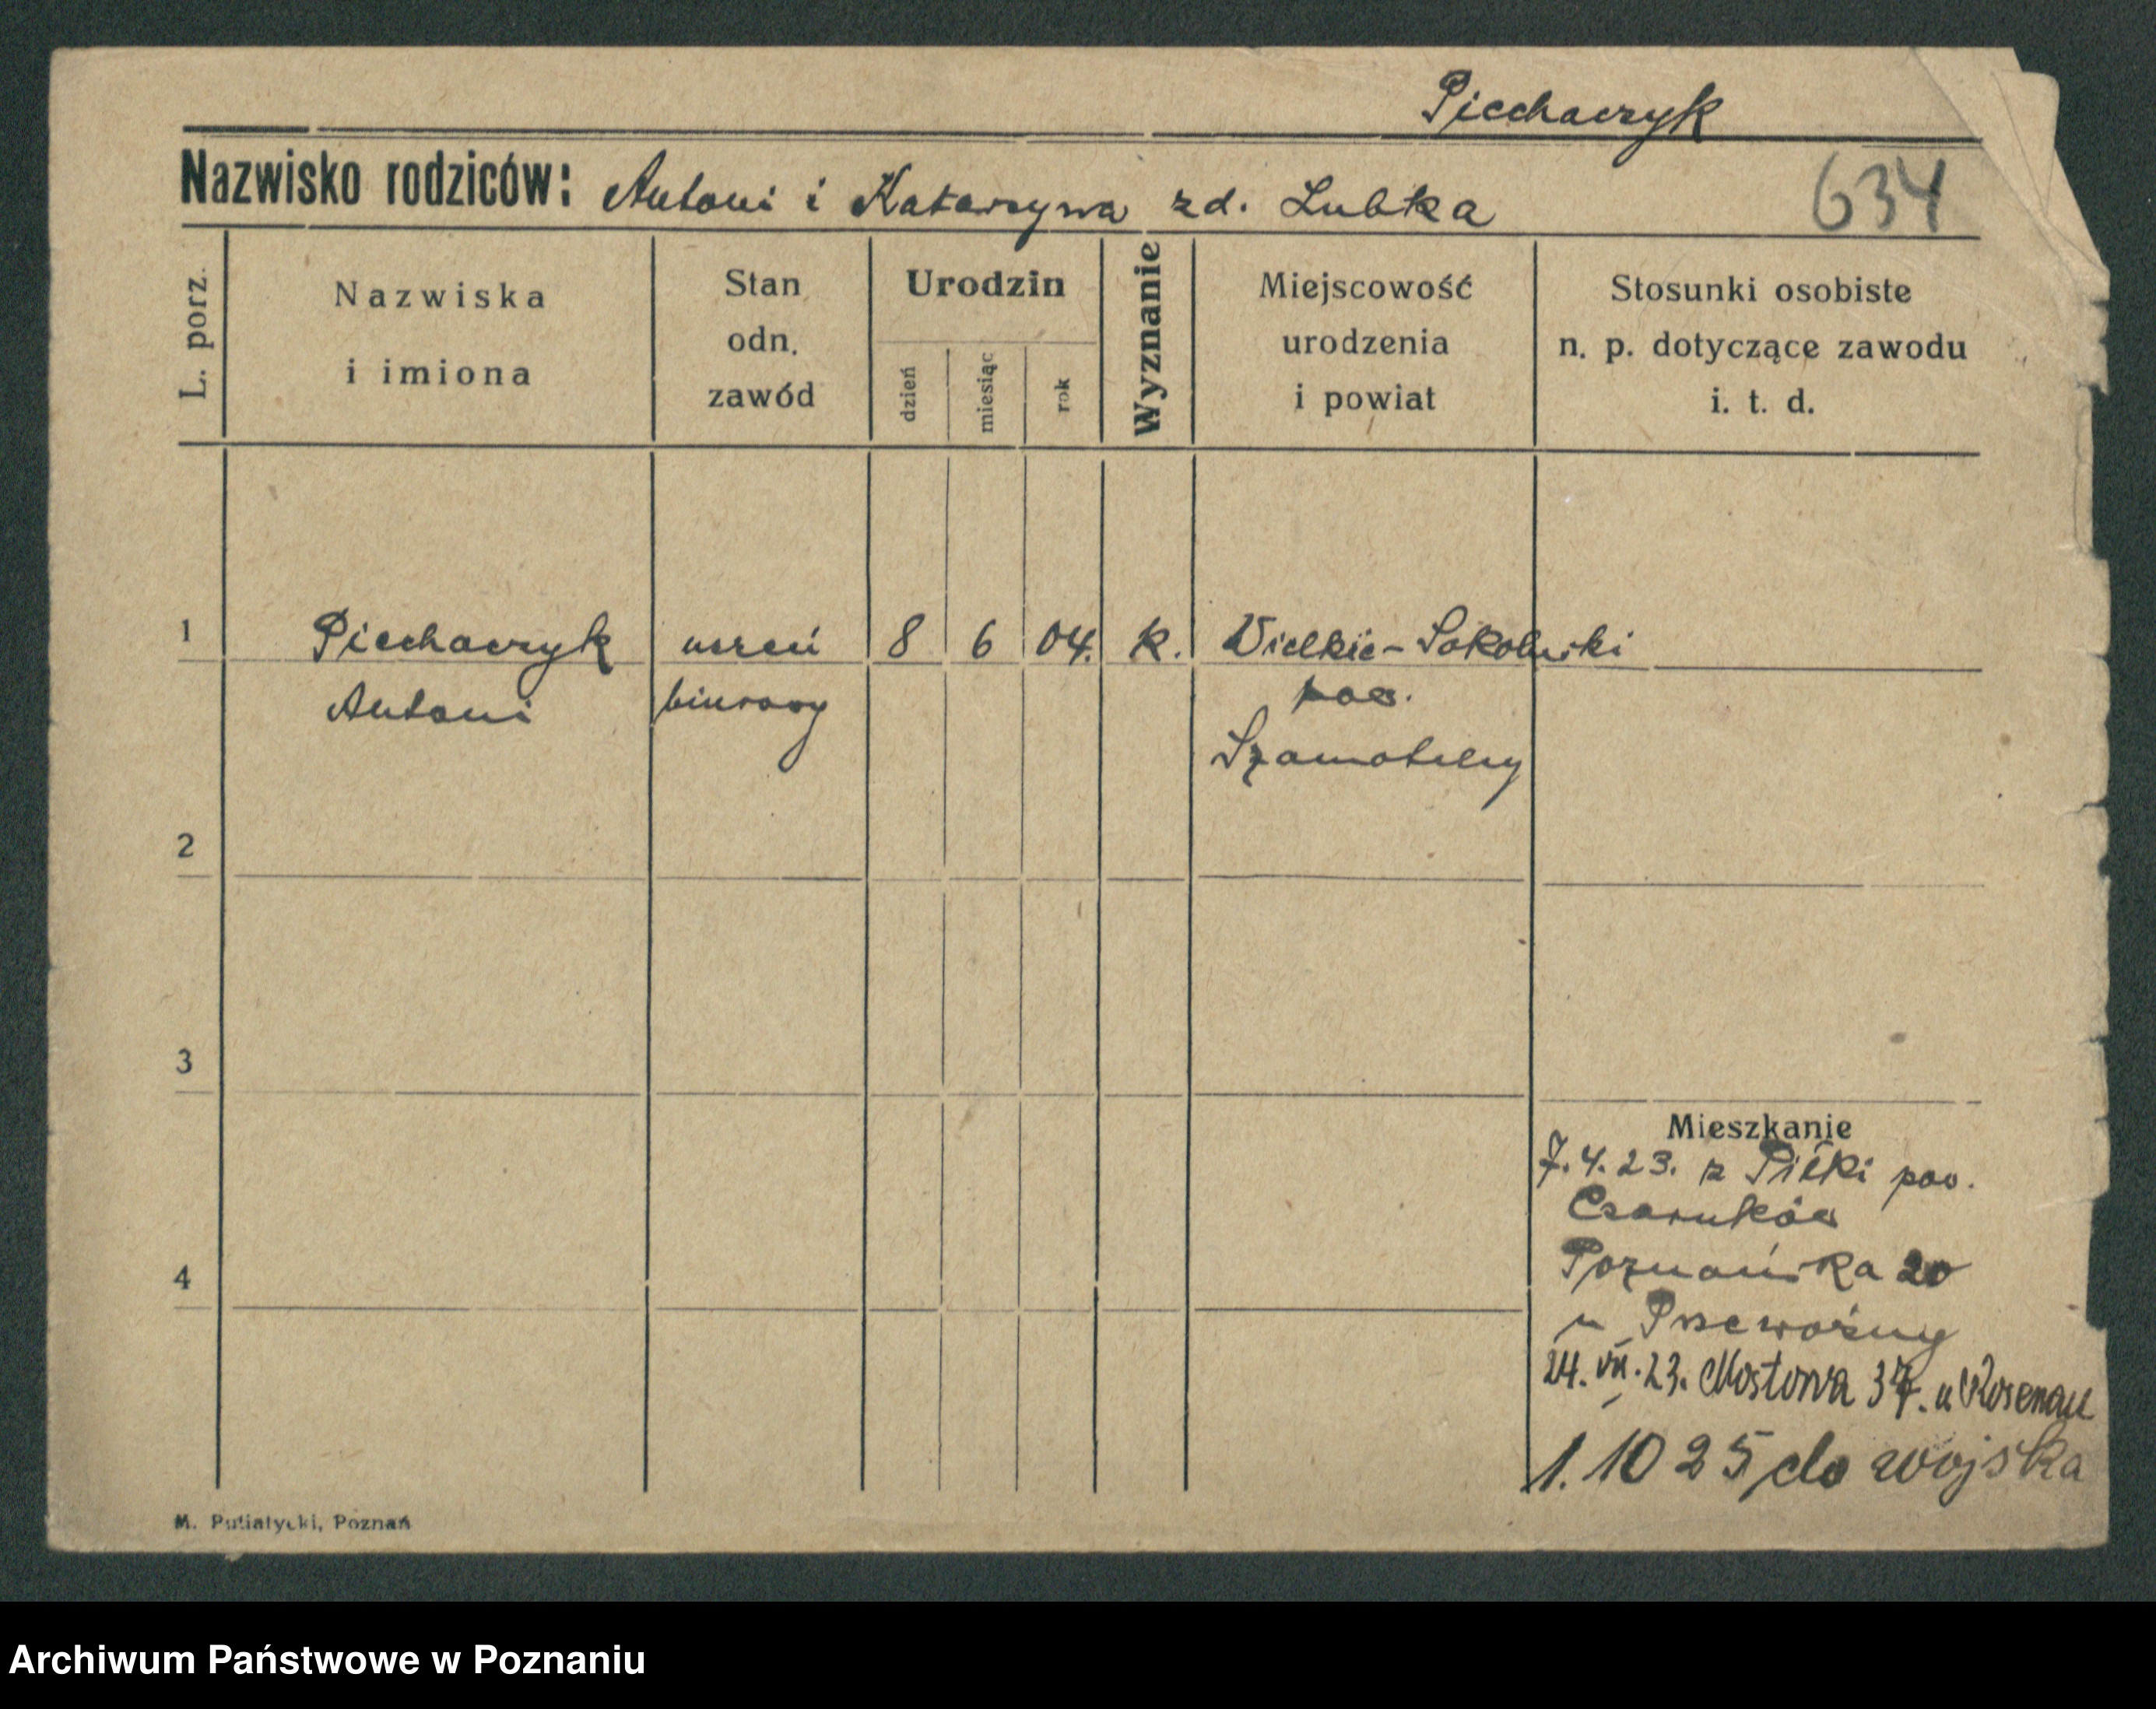 Piechaczyk
Nazwisko rodziców: Antoni i Katarzyna zd. Lubka
634
L. porz.
Nazwiska
i imiona
Stan
odn.
zawód
Urodzin
dzień
miesiąc
rok
Wyznanie
Miejscowość
urodzenia
i powiat
Stosunki osobiste
n. p. dotyczące zawodu
i. t. d.
1 Piechaczyk uczeń 8 6 04. k. Wielkie-Sokolniki
Antoni biurowy pow.
Szamotuły
2
3
4
Mieszkanie
7.4.23. z Piłki pow.
Czarnków
Poznańska 20
u Przewoźny
24.VII.23. Mostowa 37. u Rosenau
1. 10 25 do wojska
M. Putiatycki, Poznań
Archiwum Państwowe w Poznaniu